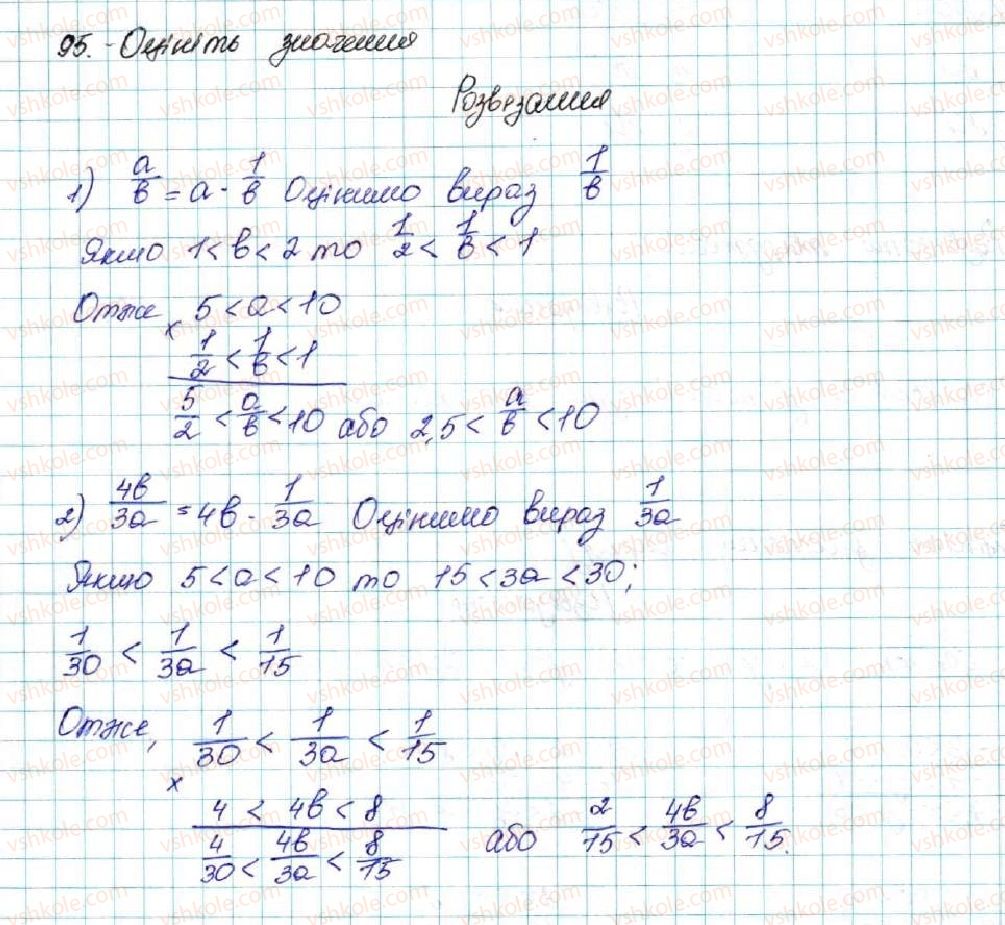 95. Оцініть значення
Розв'язання
1) a/b = a · 1/b Оцінимо вираз 1/b
Якщо 1 < b < 2 то 1/2 < 1/b < 1
Отже 5 < a < 10
× 1/2 < 1/b < 1
5/2 < a/b < 10 або 2,5 < a/b < 10
2) 4b/3a = 4b · 1/3a Оцінимо вираз 1/3a
Якщо 5 < a < 10 то 15 < 3a < 30;
1/30 < 1/3a < 1/15
Отже, 1/30 < 1/3a < 1/15
× 4 < 4b < 8
4/30 < 4b/3a < 8/15 або 2/15 < 4b/3a < 8/15.
vshkole.com